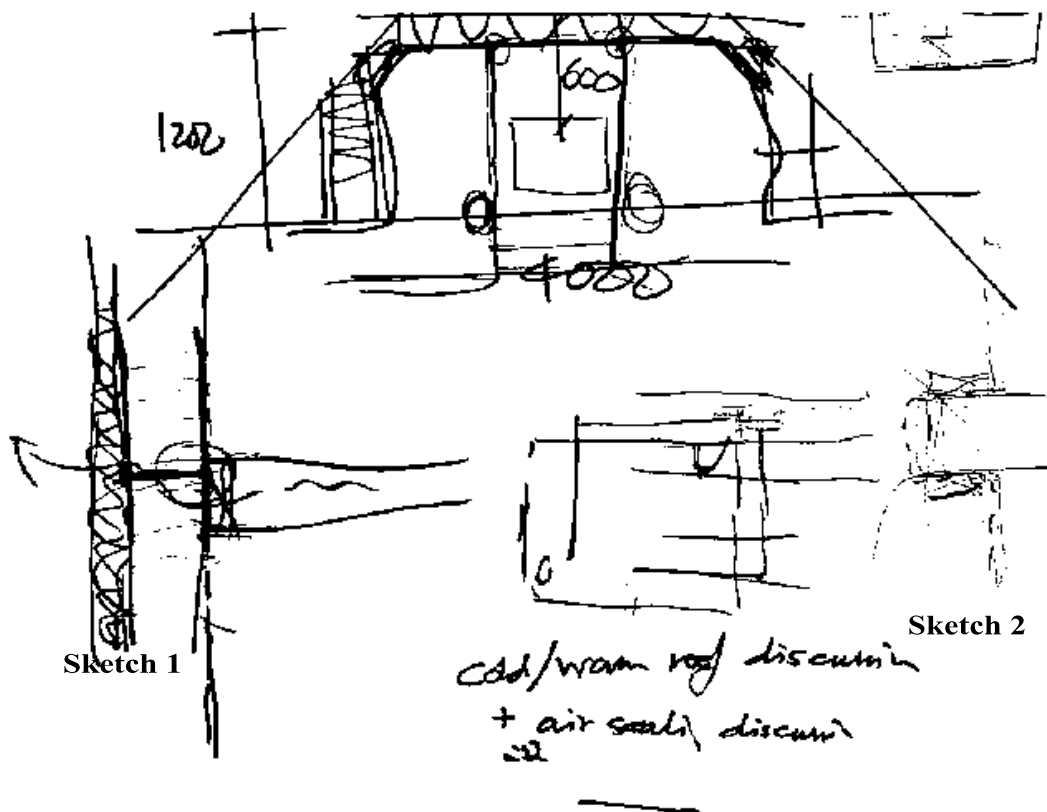 600
1200
4000
Sketch 2
Sketch 1
cold/warm roof discussion
+ air sealing discussion